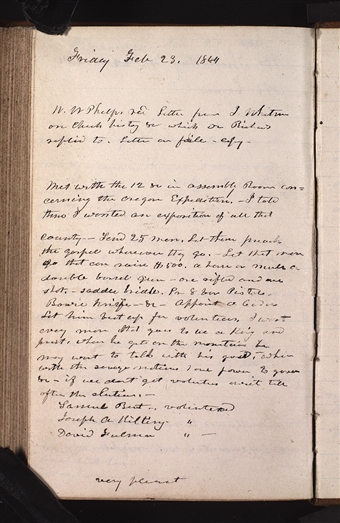 Friday Feb 23. 1844
W. W Phelps. rd. Letter from J Whitmer
on Church history &c which Dr Richards
replied to. Letter on file - copy -
Met with the 12 &c in assembly Room con-
cerning the Oregon Expedition. - I told
them I wanted an exposition of all that
country - Send 25 men. Let them preach
the gospel wherever they go. - Let that man
go that can raise $500. a horse or mule a
double barrel gun - one rifle and one
shot. - saddle bridle. Pr 8 bore Pistols.
Bowie Knife - &c - Appoint a leader
Let him beat up for volunteers. I want
every man that goes to be a King and
priest. when he gets on the mountain he
may want to talk with his god. When
with the savage nations have power to govern
&c - if we dont get volunteers wait till
after the election. -
Samuel Bent. - volunteered
Joseph A Kelting. "
David Fulmer " -
very pleasant